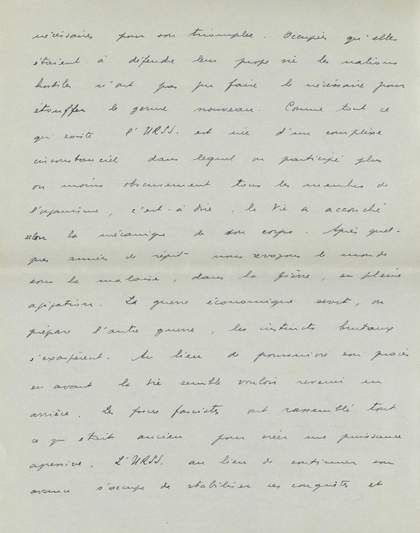 nécessaires pour son triomphe. Occupés qu'elles
étaient à défendre leur propre vie les nations
hostiles n'ont pas pu faire le nécessaire pour
étouffer le germe nouveau. Comme tout ce
qui existe l'URSS. est née d'un complexe
circonstanciel dans lequel on participé plus
ou moins obscurément tous les membres de
l'organisme, c'est-à-dire, la vie a accouché
selon la mécanique de son corps. Après quel-
ques années de répit nous revoyons le monde
sous la malaise, dans la fièvre, en pleine
agitation. La guerre économique sévit, on
prépare l'autre guerre, les instincts brutaux
s'exaspèrent. Au lieu de poursuivre son procès
en avant la vie semble vouloir revenir en
arrière. Les forces fascistes ont rassemblé tout
ce qui était ancien pour créer une puissance
agressive. L'URSS. au lieu de continuer son
avance s'occupe de stabiliser ses conquêtes et